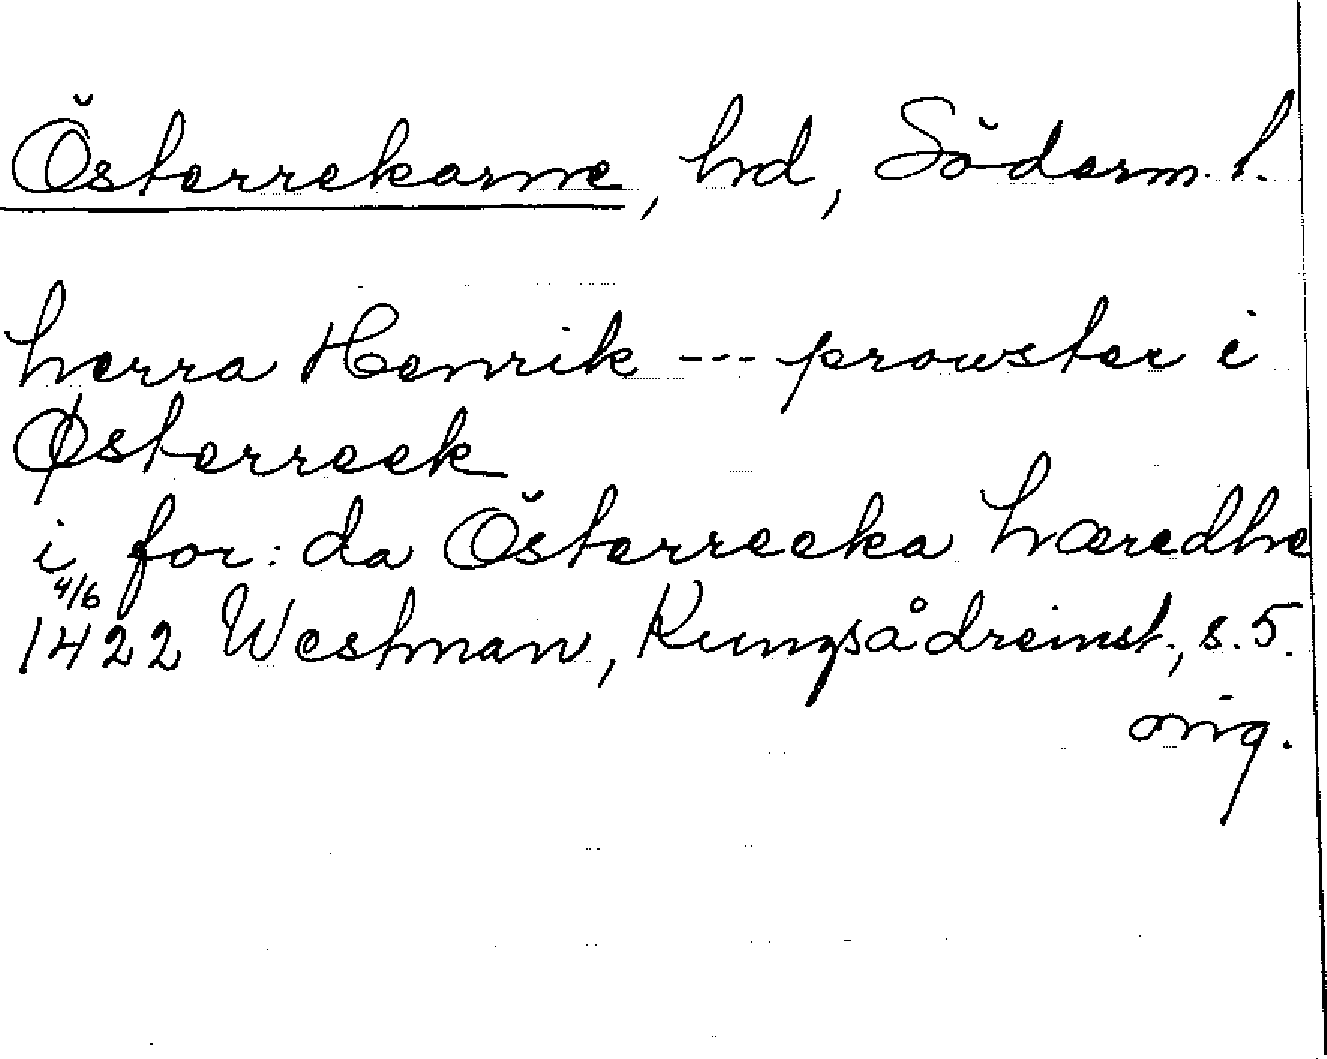 Österrekarne, hd, Söderm. l.
herra Henrik --- prowster i
Østerreek
i for: da Österreeka hæredhe
4/6
1422 Westman, Kungsådreinst., s. 5.
orig.